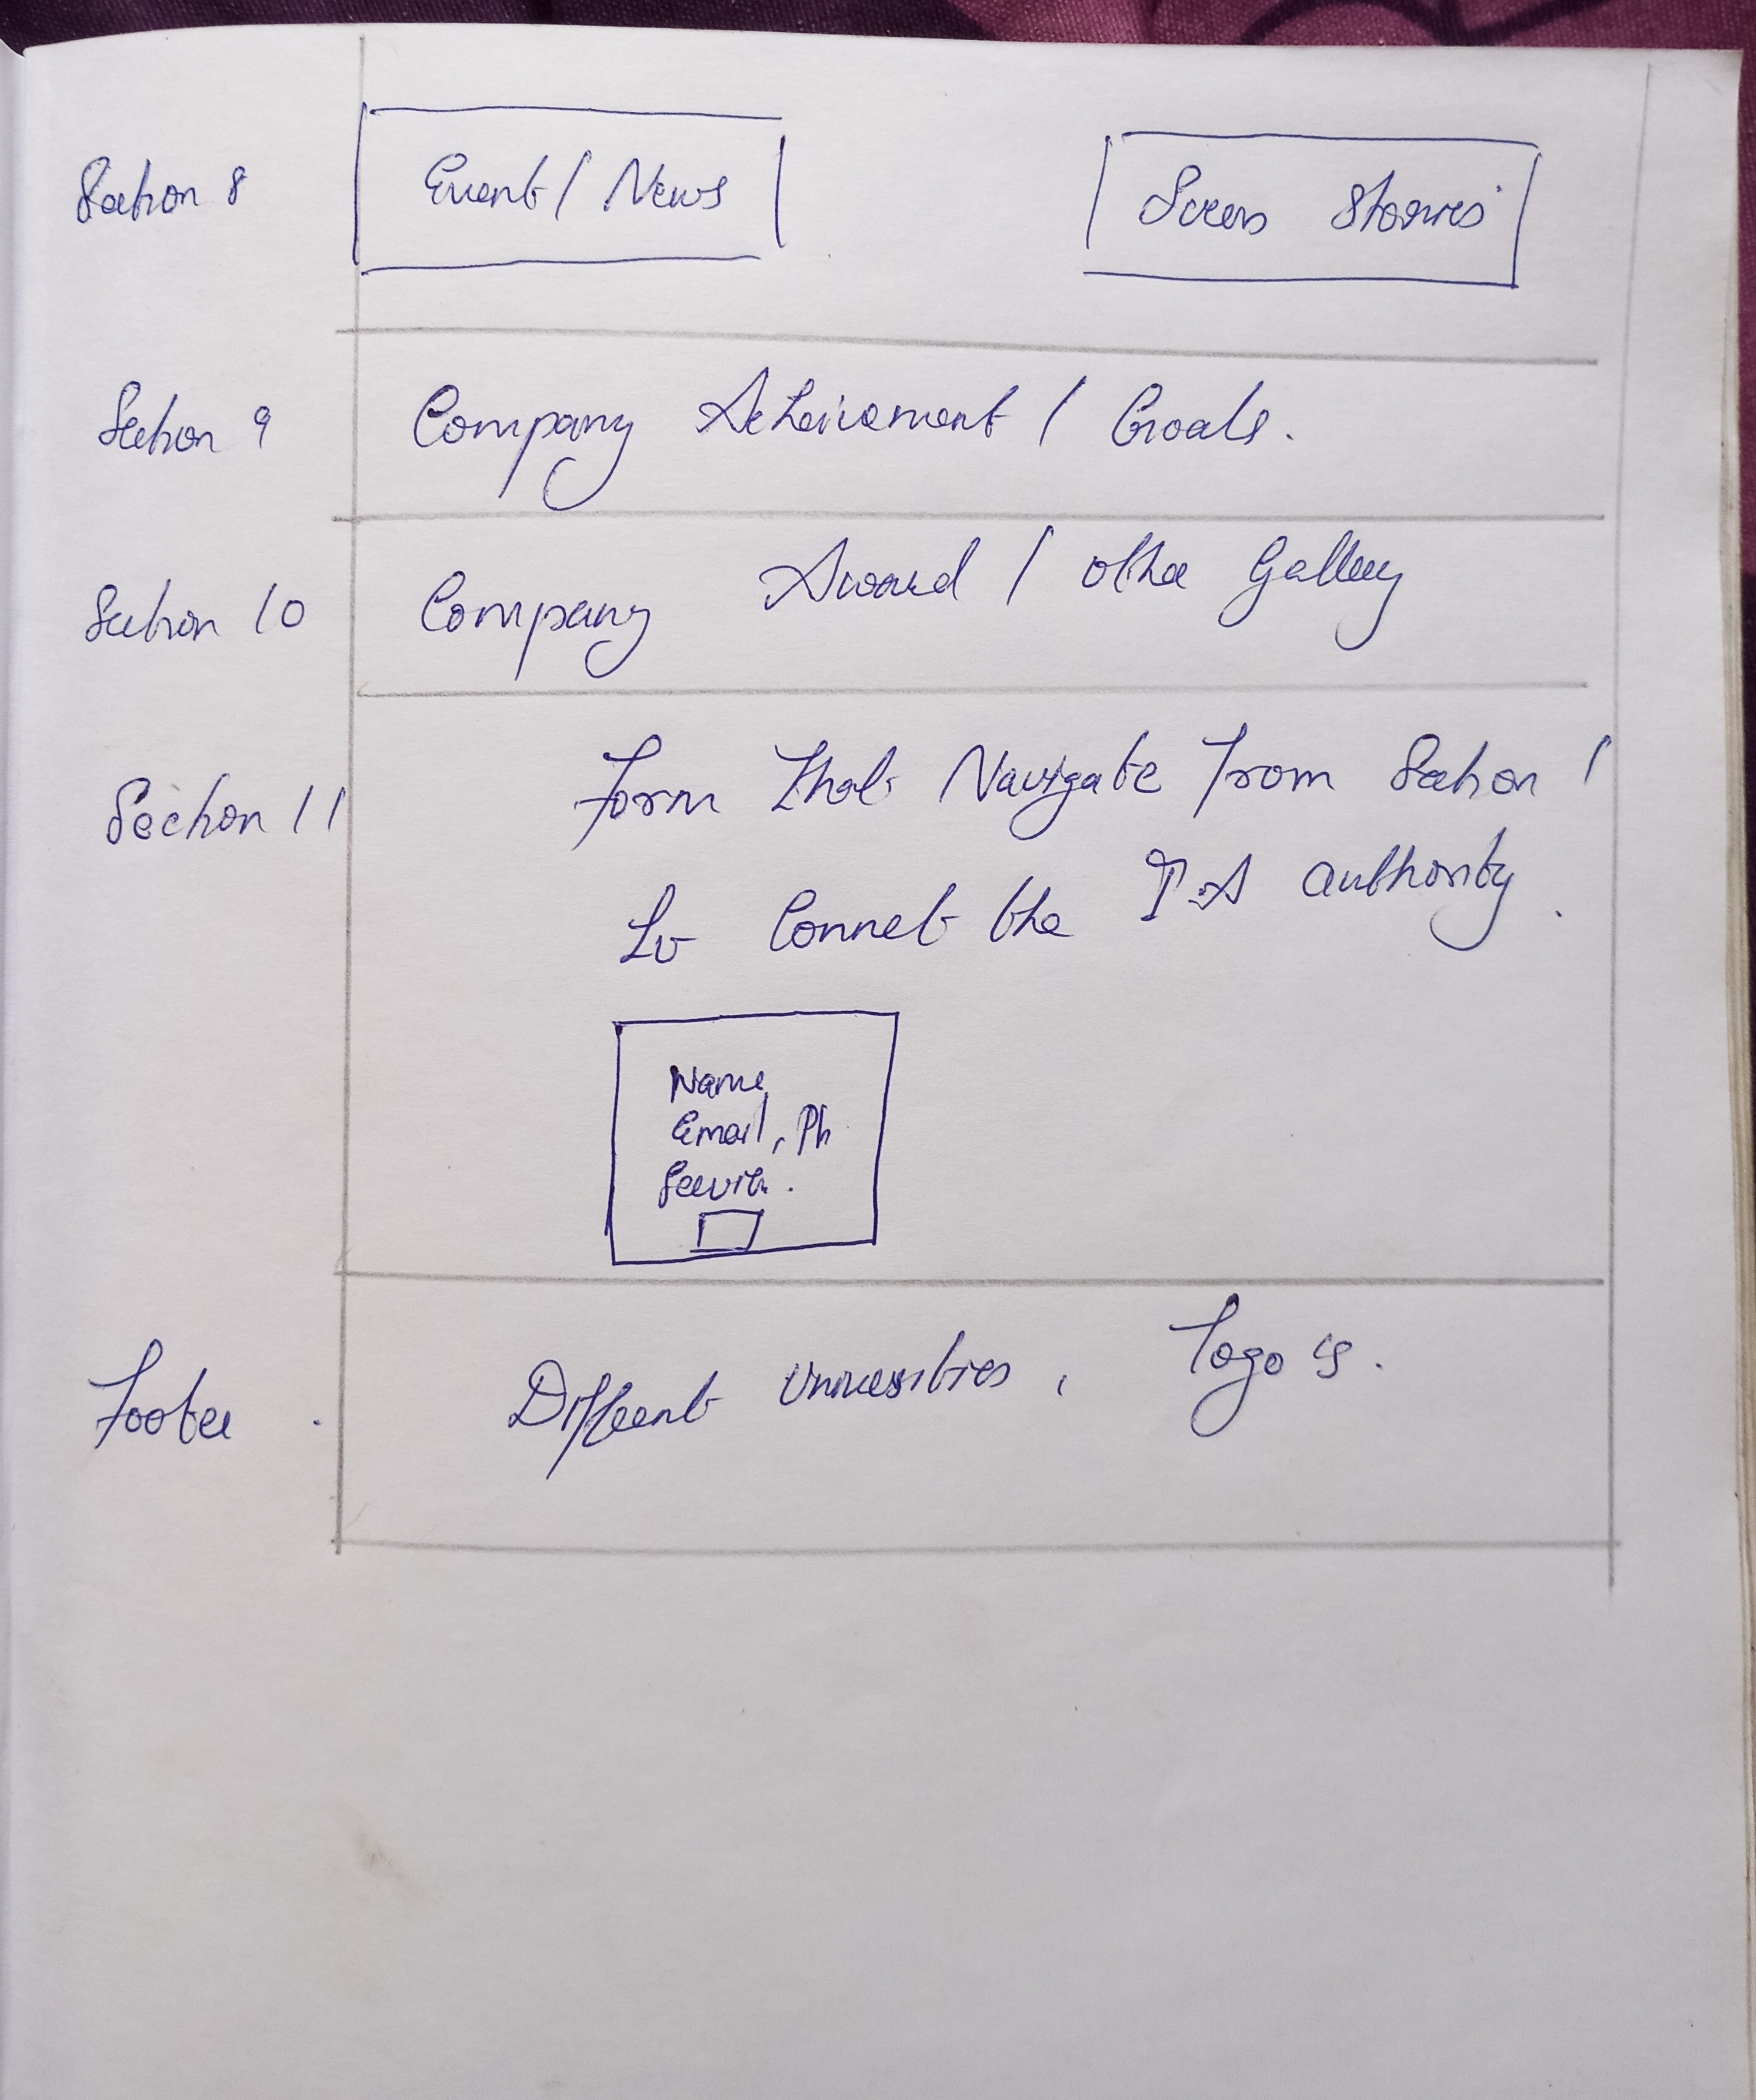 Section 8
Event / News
Success Stories
Section 9
Company Acheivement / Goals.
Section 10
Company Award / other Gallery
Section 11
Form that Navigate from Section 1
to Connet the authority.
Name
Email, Ph
Service.
Footer.
Different Universities, logo's.